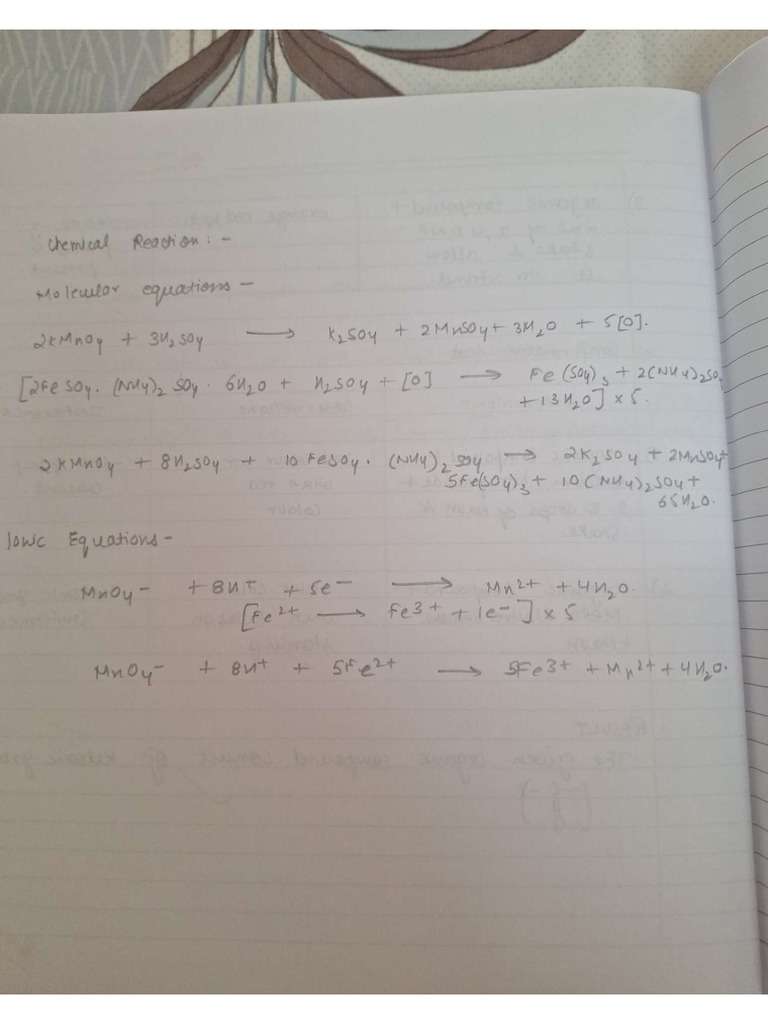 Chemical Reaction:-
Molecular equations-
2KMnO4 + 3H2SO4 ⟶ K2SO4 + 2MnSO4 + 3H2O + 5[O].
[2FeSO4. (NH4)2 SO4. 6H2O + H2SO4 + [O] ⟶ Fe(SO4)3 + 2(NH4)2SO4
+ 13H2O] × 5.
2KMnO4 + 8H2SO4 + 10FeSO4. (NH4)2 SO4 ⟶ 2K2SO4 + 2MnSO4+
5Fe(SO4)3 + 10(NH4)2SO4 +
65H2O.
Ionic Equations-
MnO4- + 8H+ + 5e- ⟶ Mn2+ + 4H2O.
[Fe2+ ⟶ Fe3+ + 1e-] × 5
MnO4- + 8H+ + 5Fe2+ ⟶ 5Fe3+ + Mn2+ + 4H2O.